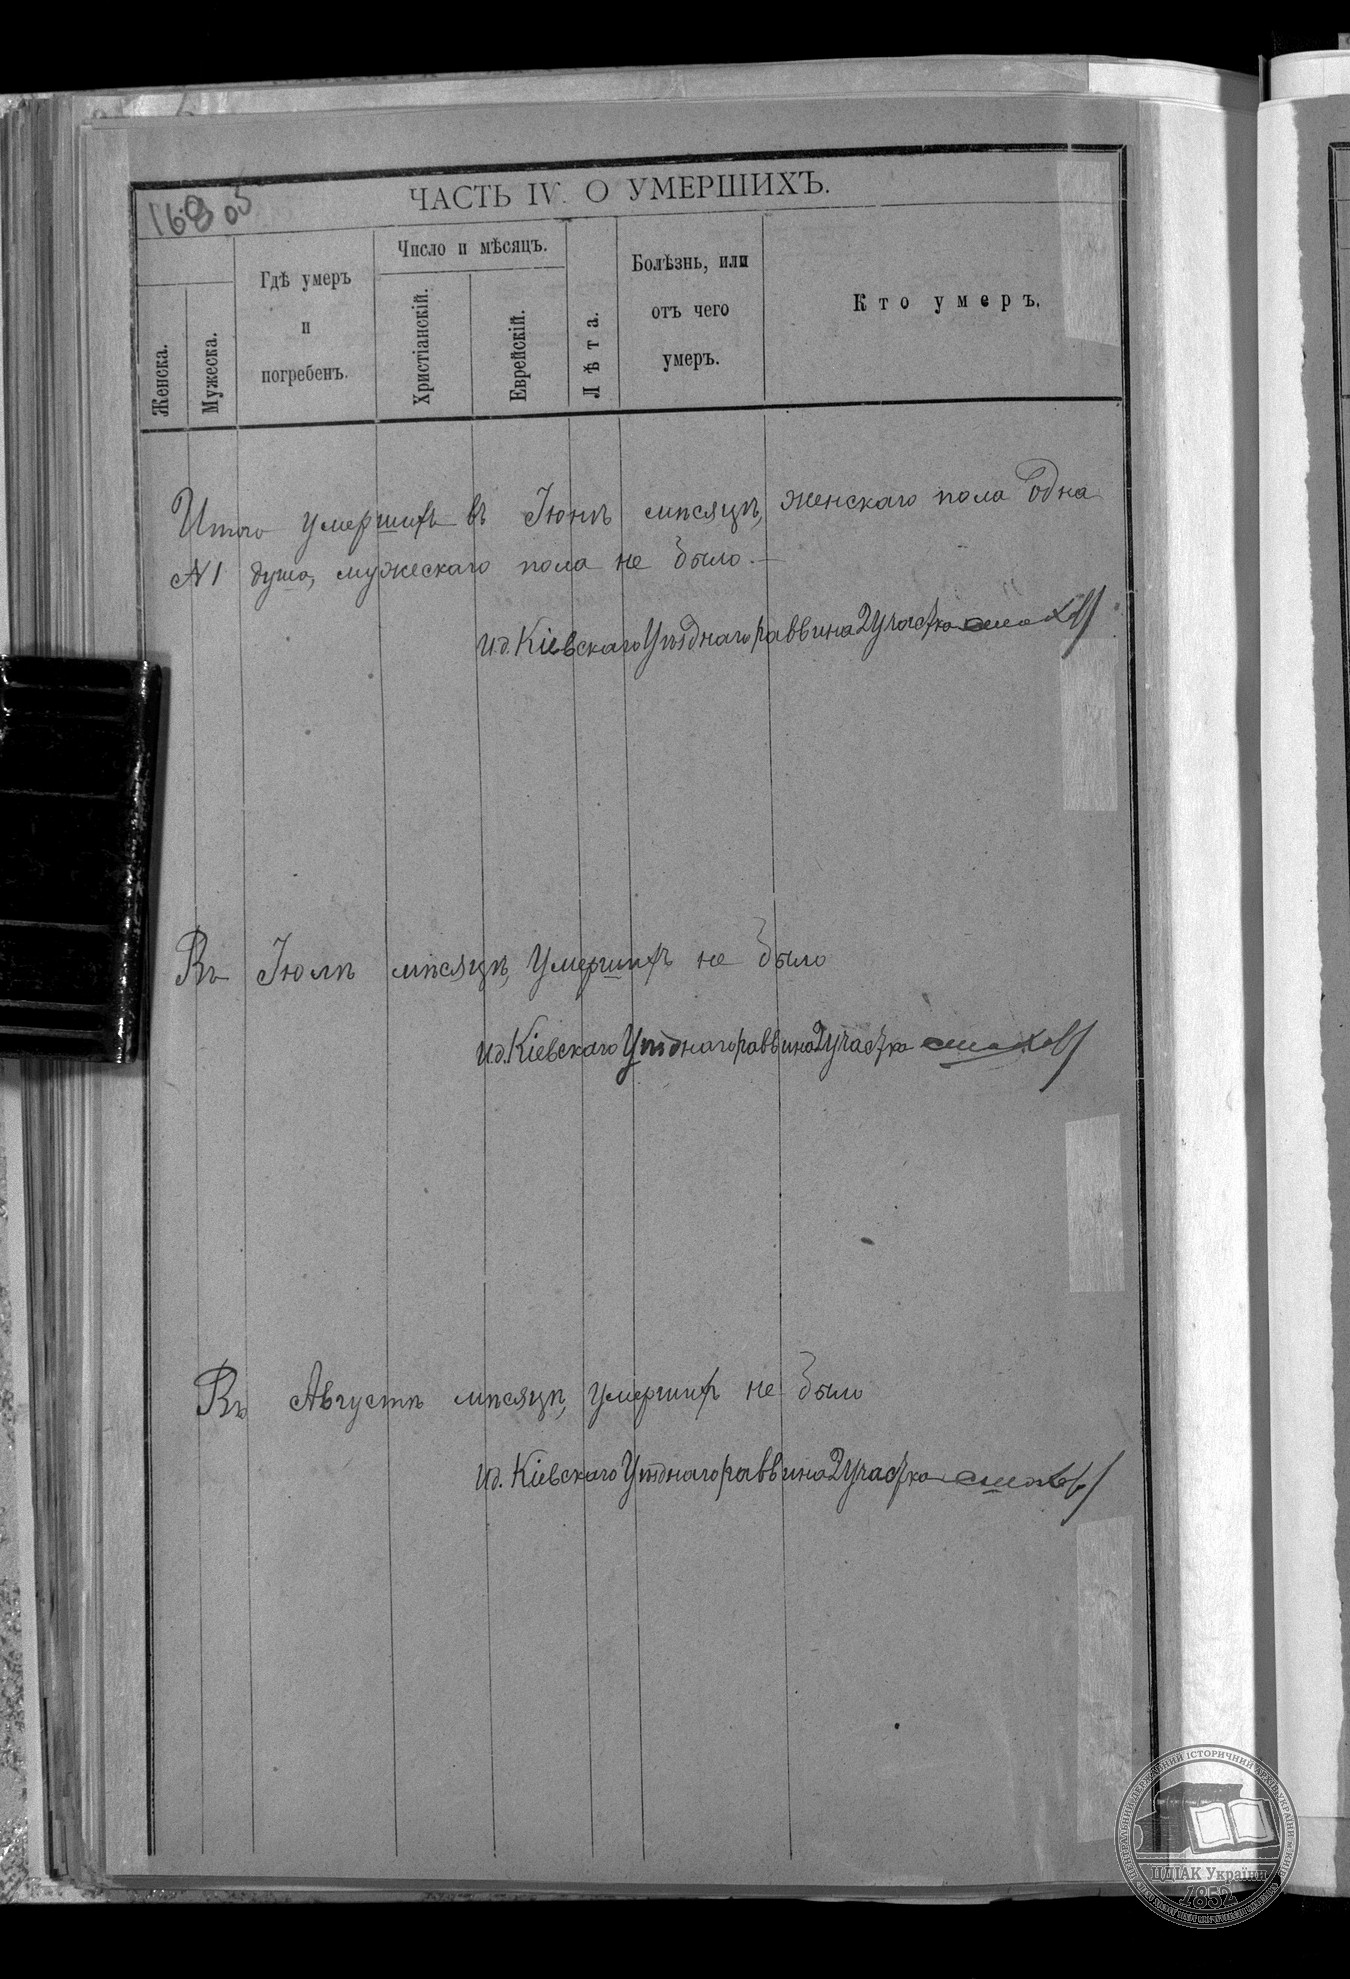 ЧАСТЬ IV. О УМЕРШИХЪ.
Женска.
Мужеска.
Гдѣ умеръ
и
погребенъ.
Число и мѣсяцъ.
Христіанскій.
Еврейскій.
Лѣта.
Болѣзнь, или
отъ чего
умеръ.
Кто умеръ.
Итого умершихъ въ Іюнѣ мѣсяцѣ, женскаго пола одна
№1 душа, мужескаго пола не было. —
И.д. Кіевскаго Уѣзднаго раввина 2 участка
Въ Іюлѣ мѣсяцѣ, умершихъ не было
И.д. Кіевскаго Уѣзднаго раввина 2 участка
Въ Августѣ мѣсяцѣ, умершихъ не было
И.д. Кіевскаго Уѣзднаго раввина 2 участка
ЦДІАК України
1852